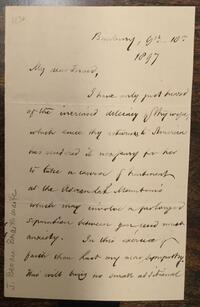 Banbury, 9th. 10th.
1897
My dear Friend,
I have only just heard
of the increased delicacy of thy wife,
which since thy return to America
has rendered it necessary for her
to take a course of treatment
at the Adirondack Mountains
which may involve a prolonged
separation between you and much
anxiety. In this exercise of
faith thou hast my deep sympathy.
This will bring no small additional